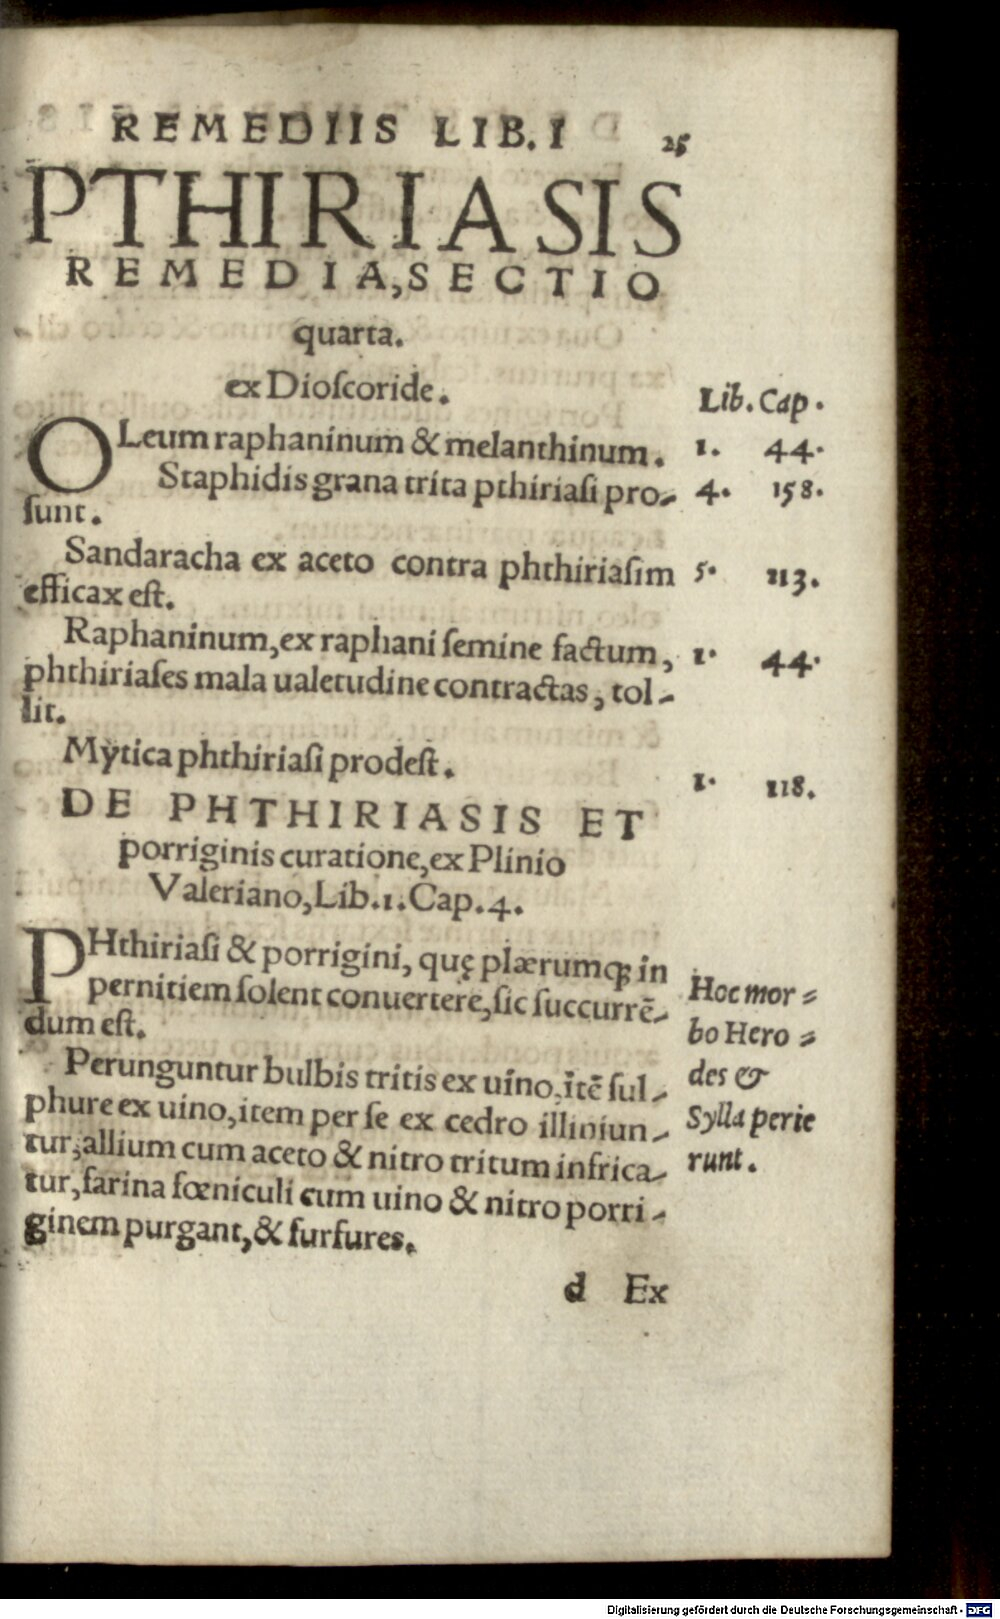 REMEDIIS LIB. I 25
PTHIRIASIS
REMEDIA, SECTIO
quarta.
ex Dioſcoride.
Lib. Cap.
OLeum raphaninum & melanthinum. 1. 44.
Staphidis grana trita pthiriaſi pro- 4. 158.
ſunt.
Sandaracha ex aceto contra phthiriaſim 5. 113.
efficax eſt.
Raphaninum, ex raphani ſemine factum, 1. 44.
phthiriaſes mala ualetudine contractas, tol-
lit.
Mytica phthiriaſi prodeſt. 1. 118.
DE PHTHIRIASIS ET
porriginis curatione, ex Plinio
Valeriano, Lib. 1. Cap. 4.
PHthiriaſi & porrigini, quę plærumqꝫ in
pernitiem ſolent conuertere, ſic ſuccurrē-
dum eſt.
Hoc mor-
bo Hero-
des &
Sylla perie
runt.
Perunguntur bulbis tritis ex uino, itē ſul-
phure ex uino, item per ſe ex cedro illiniun-
tur, allium cum aceto & nitro tritum infrica-
tur, farina fœniculi cum uino & nitro porri-
ginem purgant, & furfures.
d Ex
Digitalisierung gefördert durch die Deutsche Forschungsgemeinschaft - DFG